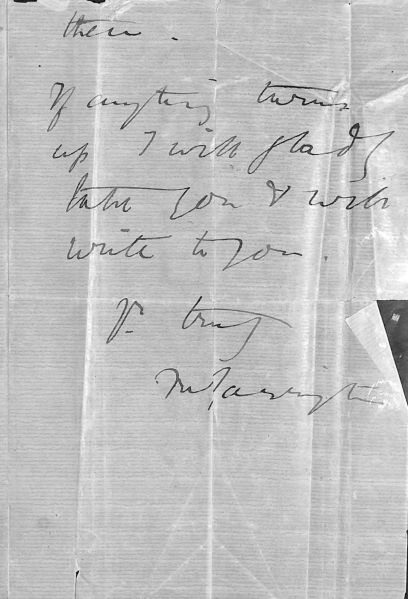 them.
If anything turns
up I will gladly
take you & will
write to you.
Yr truly